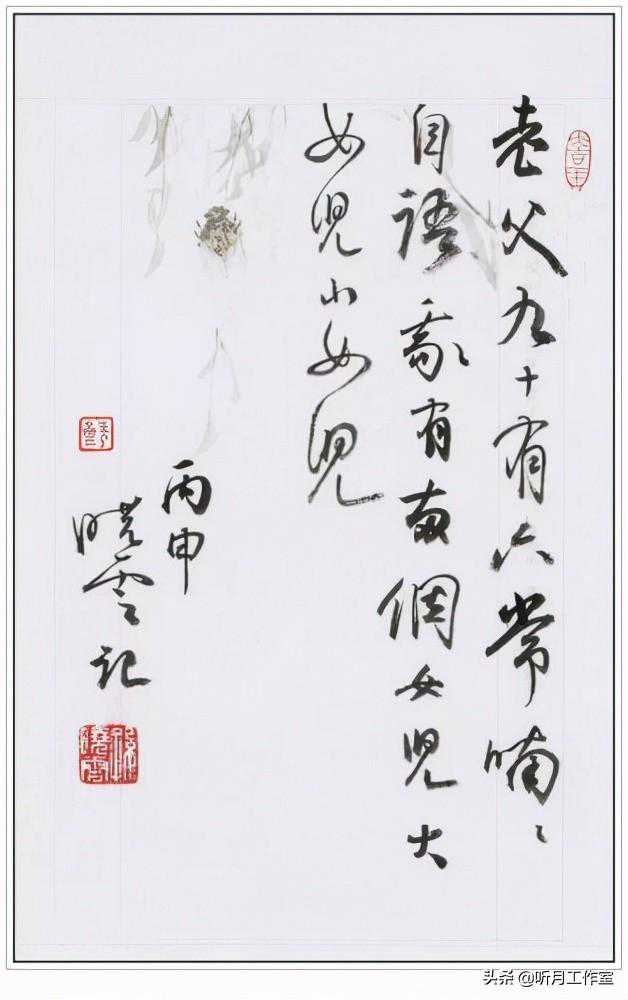 老父九十有六常喃〻
自語我有两個女兒大
女兒小女兒
丙申
晓雲記
头条 @听月工作室